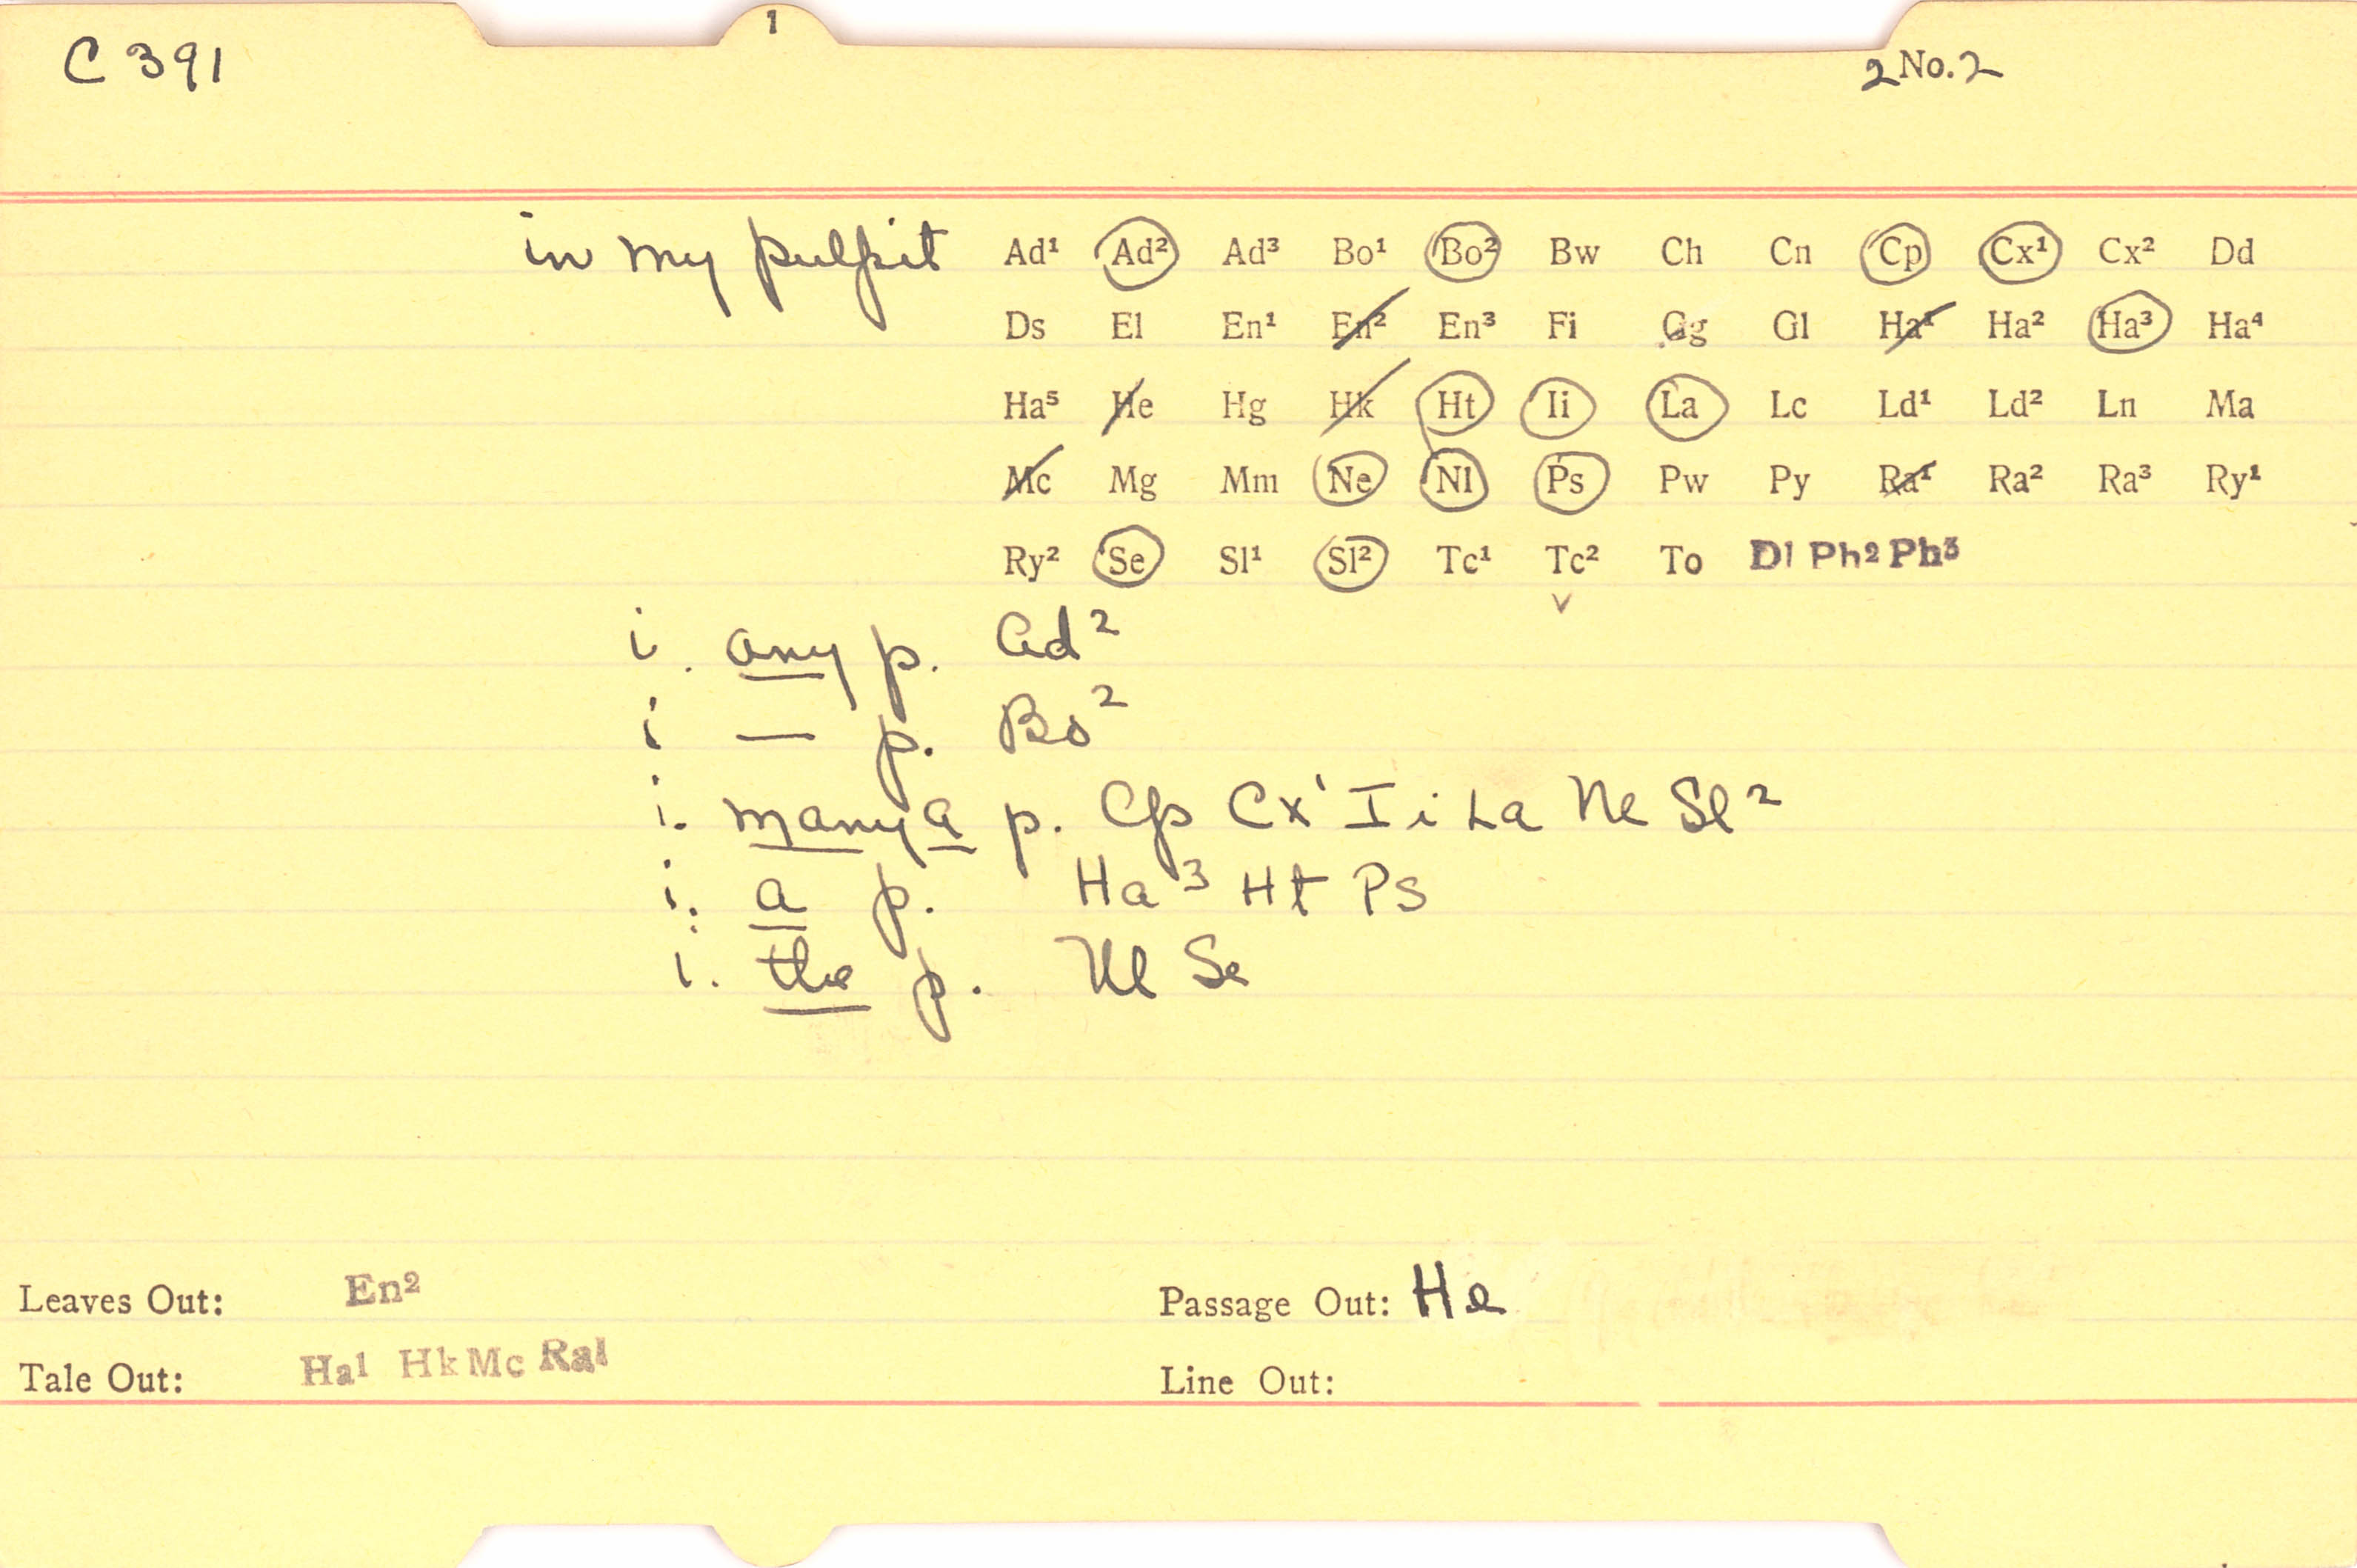 1
C 391
2 No. 2
in my pulpit Ad¹ Ad² Ad³ Bo¹ Bo² Bw Ch Cn Cp Cx¹ Cx² Dd
Ds El En¹ En² En³ Fi Gg Gl Ha¹ Ha² Ha³ Ha⁴
Ha⁵ He Hg Hk Ht Ii La Lc Ld¹ Ld² Ln Ma
Mc Mg Mm Ne Nl Ps Pw Py Ra¹ Ra² Ra³ Ry¹
Ry² Se Sl¹ Sl² Tc¹ Tc² To Dl Ph² Ph³
i. any p. Ad²
i — p. Bo²
i. many a p. Cp Cx¹ Ii La Ne Sl²
i. a p. Ha³ Ht Ps
i. the p. Nl Se
Leaves Out: En² Passage Out: He
Tale Out: Ha¹ Hk Mc Ra¹ Line Out: